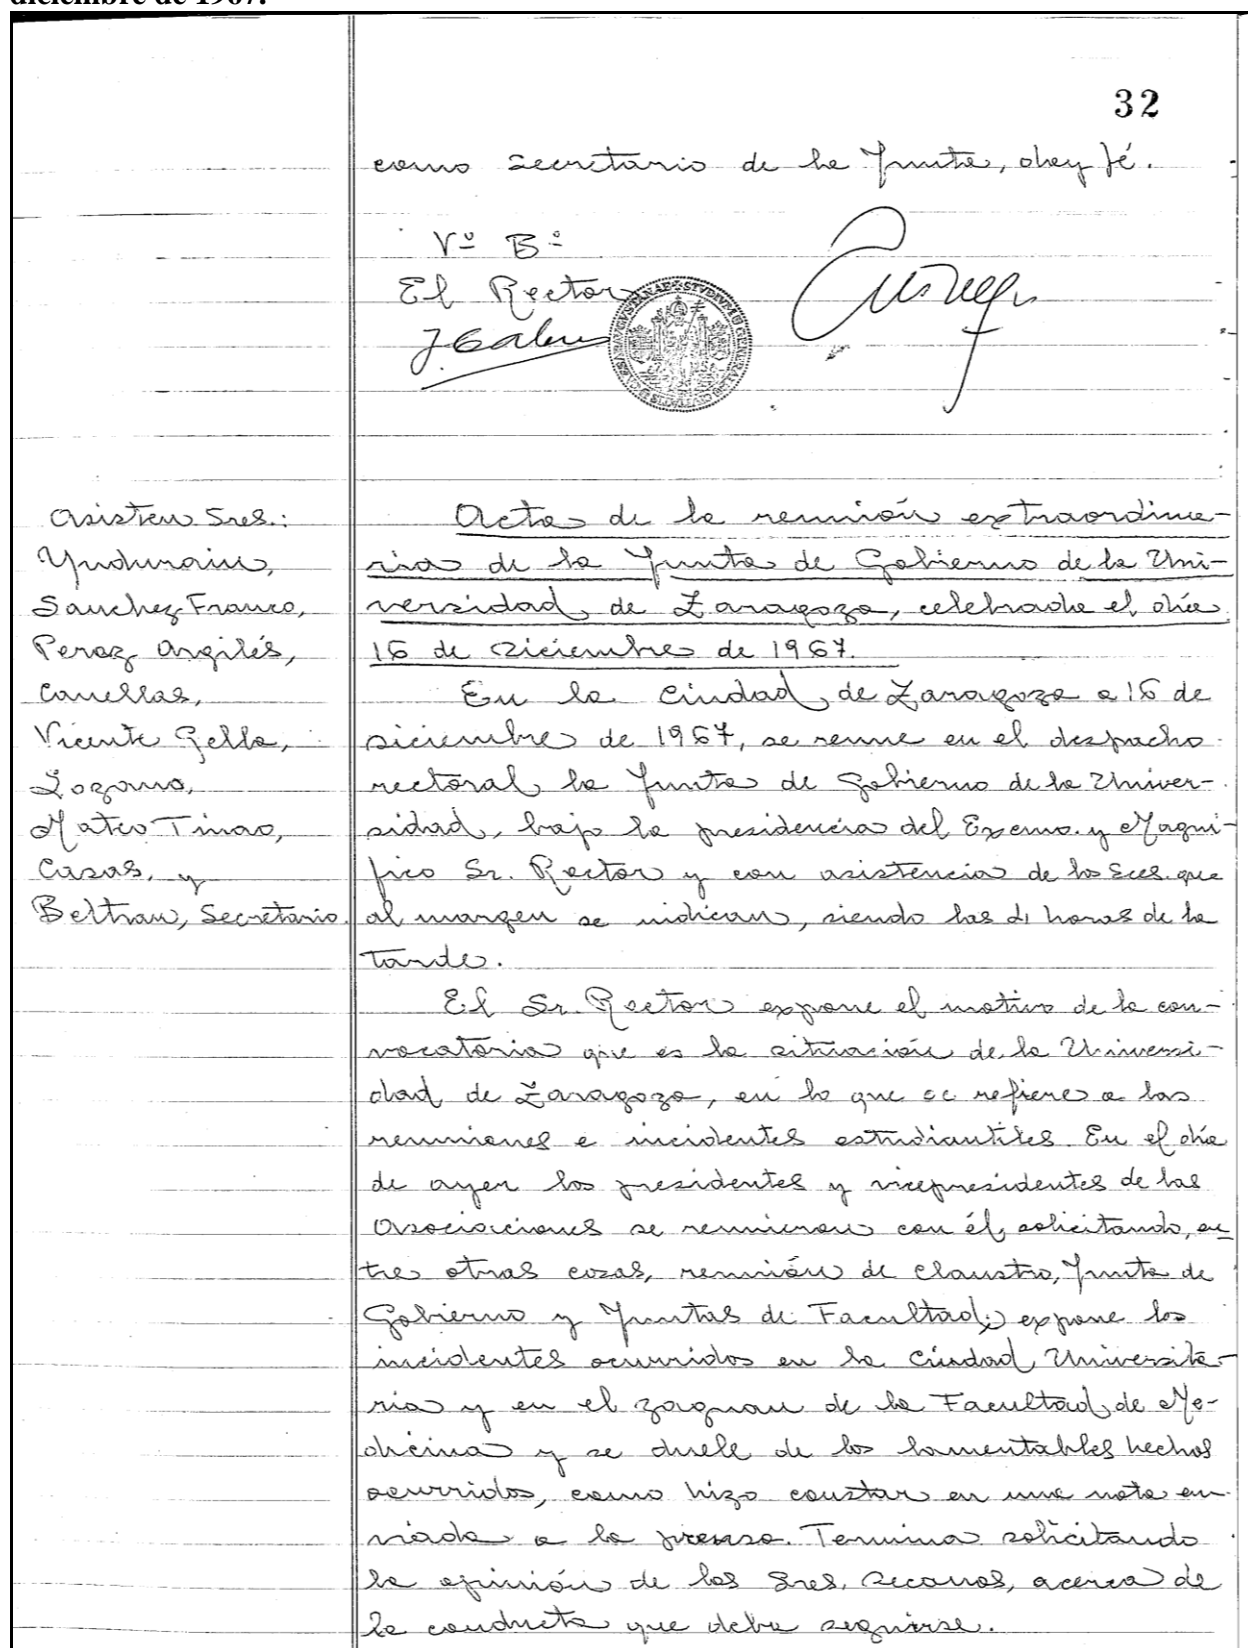 diciembre de 1967.
32
como secretario de la Junta, doy fé.
Vº Bº
El Rector
Asisten Sres.:
Yndurain,
Sanchez Franco,
Perez Argilés,
Canellas,
Vicente Gella,
Lozano,
Mateo Tinao,
Casas, y
Beltran, Secretario.
Acta de la reunión extraordina-
ria de la Junta de Gobierno de la Uni-
versidad de Zaragoza, celebrada el día
16 de Diciembre de 1967.
En la Ciudad de Zaragoza a 16 de
Diciembre de 1967, se reune en el despacho
rectoral la Junta de Gobierno de la Univer-
sidad, bajo la presidencia del Excmo. y Magni-
fico Sr. Rector y con asistencia de los Sres. que
al margen se indican, siendo las horas de la
tarde.
El Sr. Rector expone el motivo de la con-
vocatoria que es la situación de la Universi-
dad de Zaragoza, en lo que se refiere a las
reuniones e incidentes estudiantiles. En el día
de ayer los presidentes y vicepresidentes de las
Asociaciones se reunieron con él, solicitando, en
tre otras cosas, reunión de Claustro, Junta de
Gobierno y Juntas de Facultad; expone los
incidentes ocurridos en la Ciudad Universita-
ria y en el zaguan de la Facultad de Me-
dicina y se duele de los lamentables hechos
ocurridos, como hizo constar en una nota en
viada a la prensa. Termina solicitando
la opinión de los Sres. Decanos, acerca de
la conducta que deba seguirse.